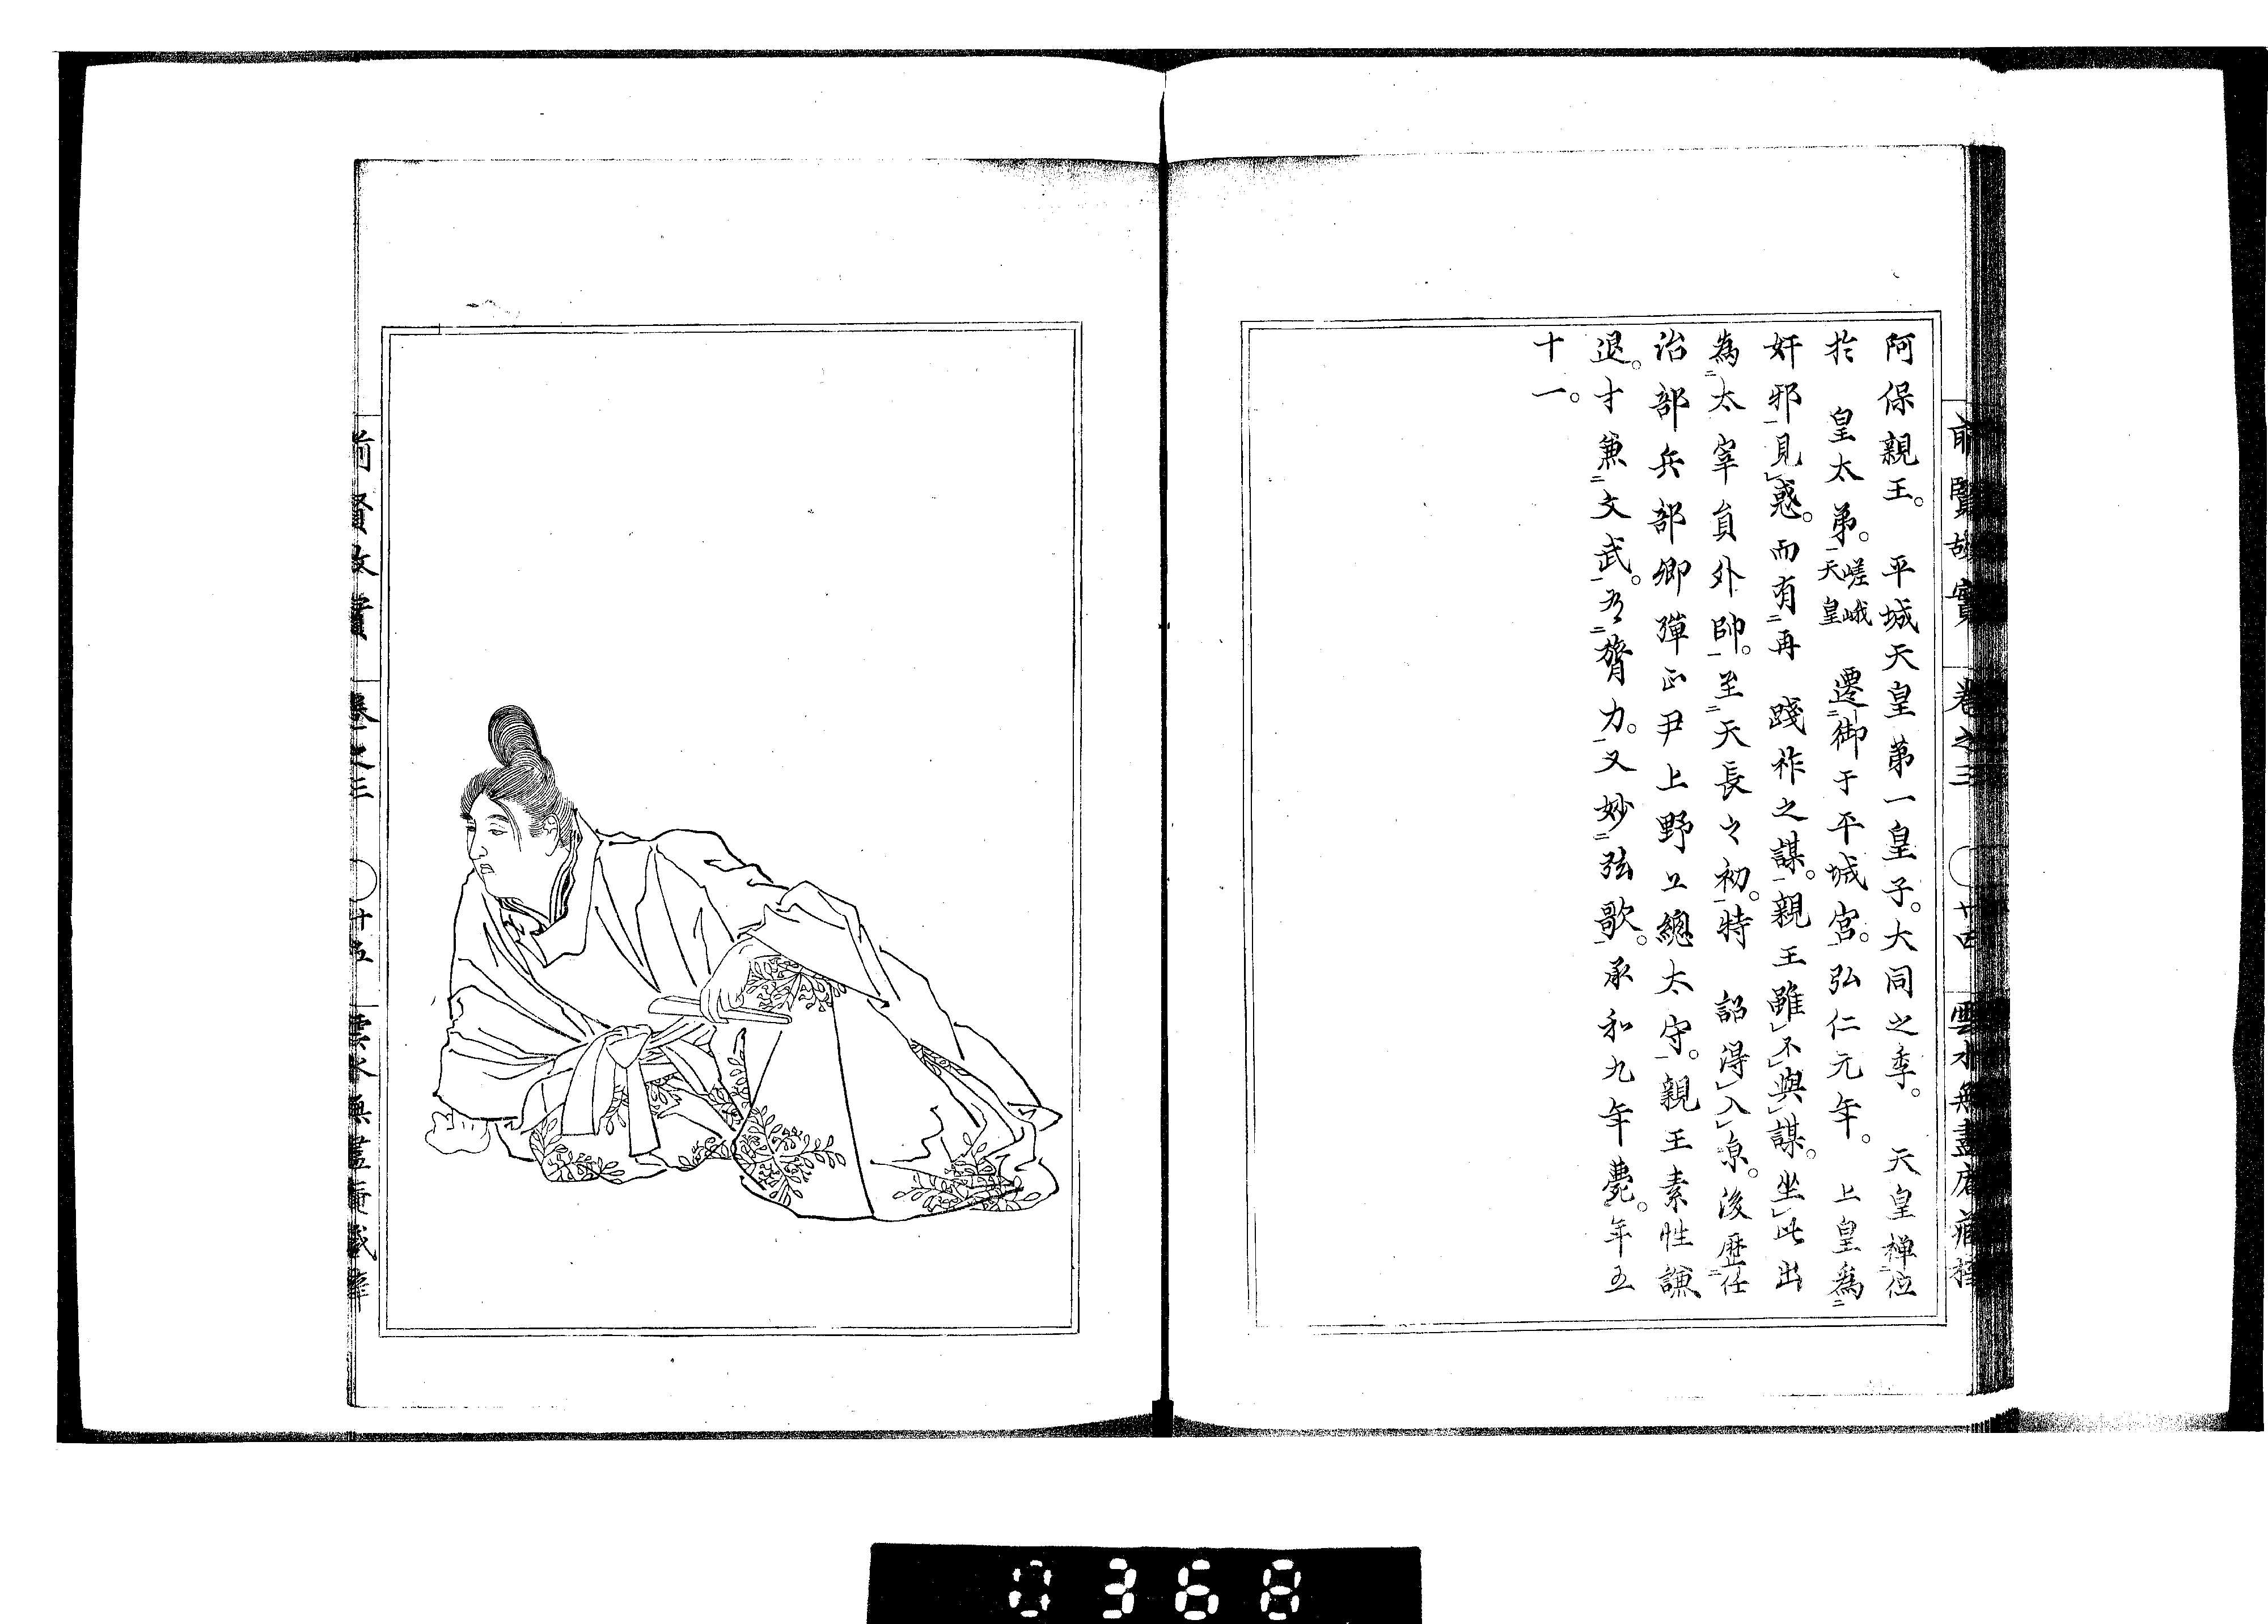 阿保親王。平城天皇第一皇子。大同之季。天皇禅位
於皇太弟。嵯峨天皇遷御于平城宮。弘仁元年。上皇為
奸邪見惑。而有再践祚之謀。親王雖不與謀。坐此出
為太宰員外帥。至天長之初。特詔得入京。後歴任
治部兵部卿弾正尹上野上總太守。親王素性謙
退。才兼文武。有膂力。又妙弦歌。承和九年薨。年五
十一。
前賢故實 巻之三 廿四 雲水無盡庵藏
前賢故實 巻之三 廿五 雲水無盡庵藏
0368